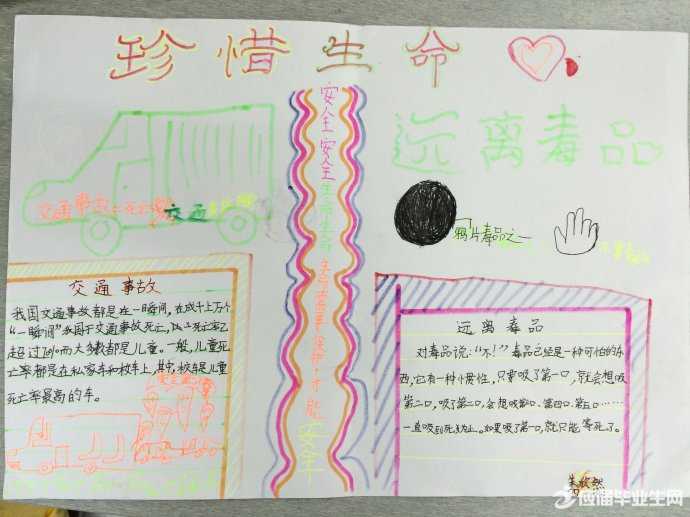 珍惜生命
远离毒品
交通事故=死亡
交通
鸦片毒品之一
安全安全生命生命
安全
交通事故
我国交通事故都是在一瞬间，在成千上万个
“一瞬间”我国于交通事故死亡，
超过 而大多数都是儿童。一般，儿童死
亡率都是在私家车和校车上，其中，校车是儿童
死亡率最高的车。
远离毒品
对毒品说：“不！”毒品已经是一种可怕的东
西，它有一种惯性，只要吸了第一口，就会想吸
第二口，吸了第二口，会想吸第三口、第四口、第五口……
一直吸到死为止。如果吸了第一口，就只能等死了。
朱欣然
应届毕业生网